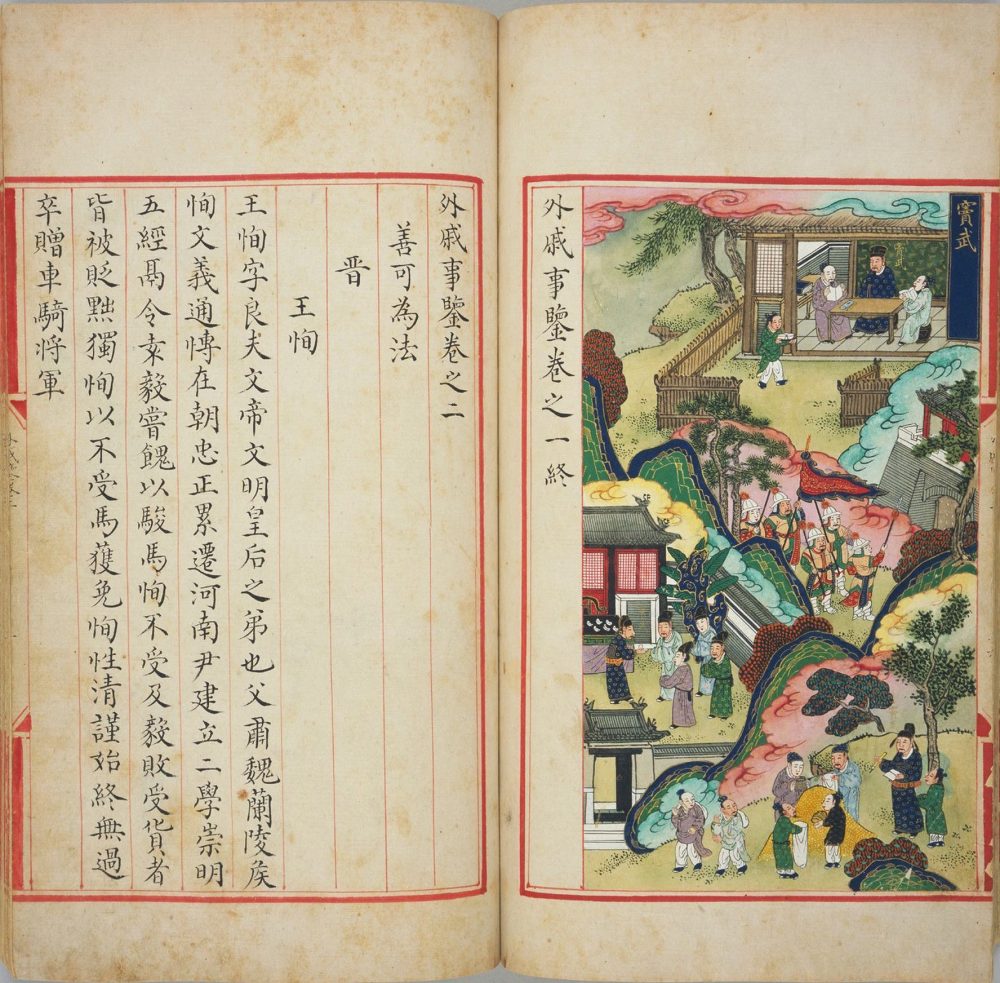 竇武
竇武
外戚事鑒卷之一終
外戚事鑒卷之二
善可為法
晋
王恂
王恂字良夫文帝文明皇后之弟也父肅魏蘭陵矦
恂文義通愽在朝忠正累遷河南尹建立二學崇明
五經鬲令袁毅嘗餽以駿馬恂不受及毅敗受貨者
皆被貶黜獨恂以不受馬獲免恂性清謹始終無過
卒贈車騎将軍